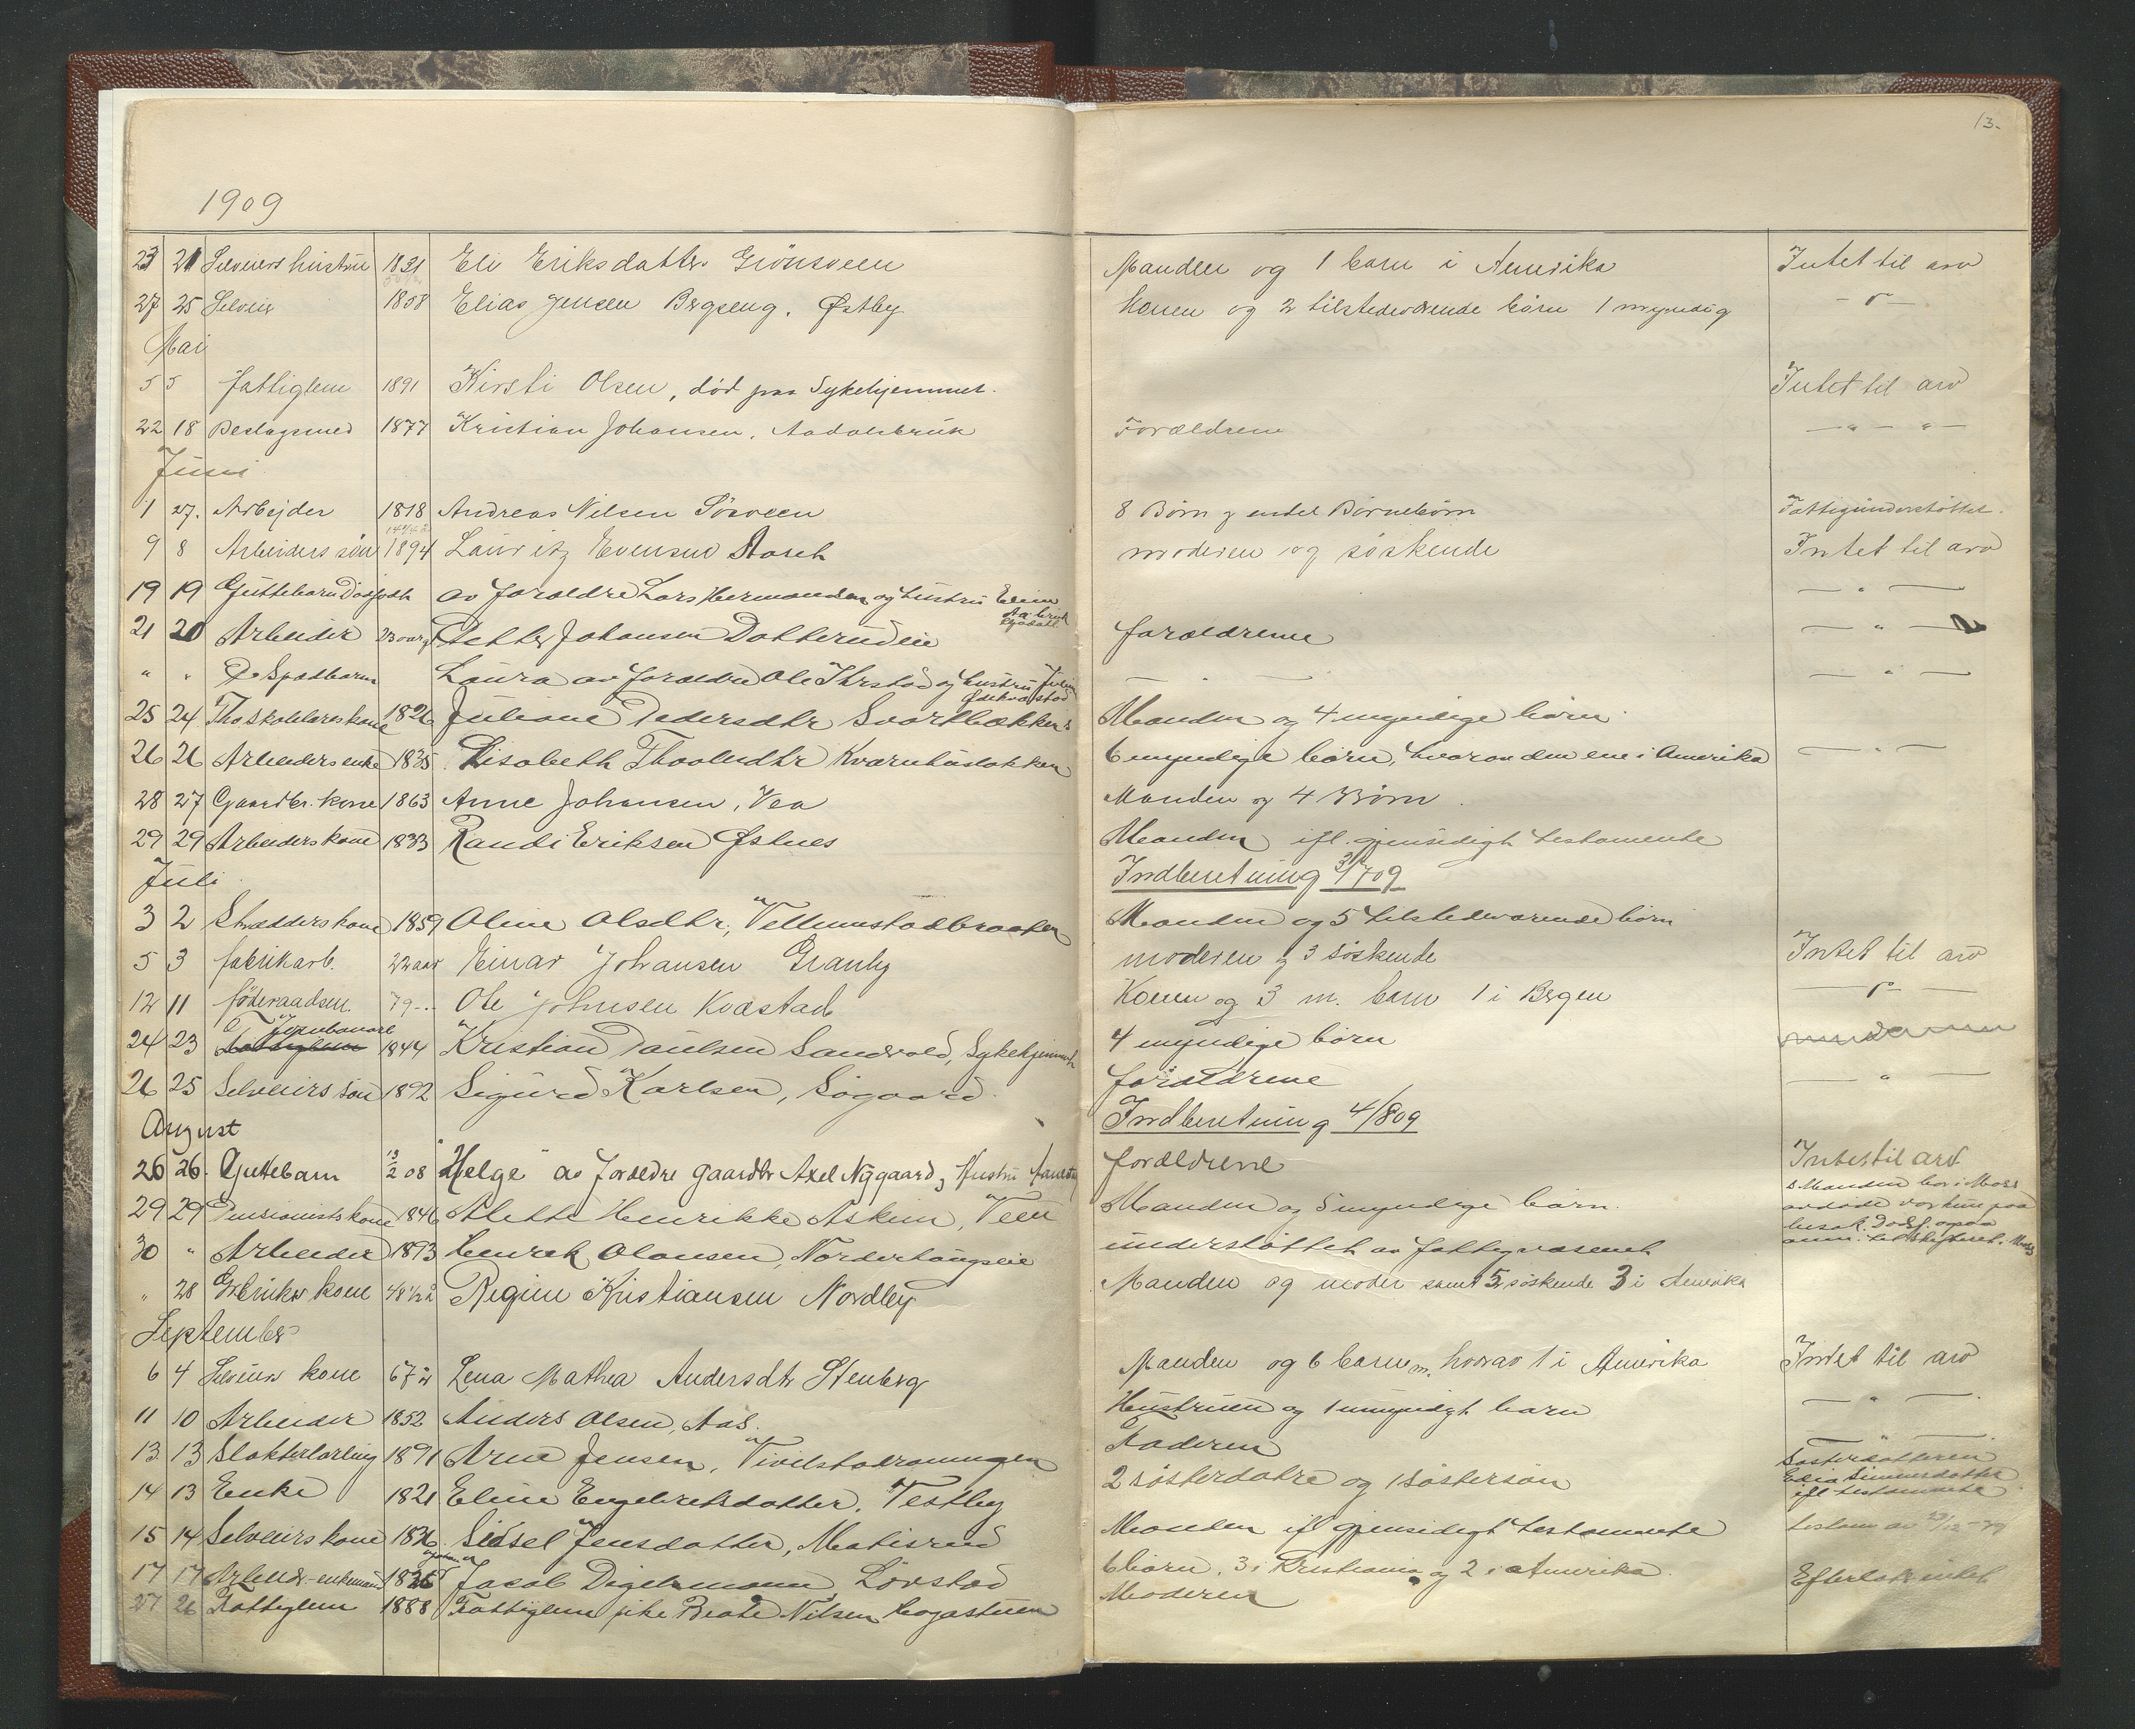 13.
1909
23 21 Selveiers hustru 1831 Eli Eriksdatter Grönsveen Manden og 1 barn i Amerika Intet til arv
27 25 Selveier 1858 Elias Jensen Bergseng. Østby Konen og 2 tilstedeværende börn 1 myndig — " —
Mai
5 5 Fattiglem 1891 Kirsti Olsen, död paa Sykehjemmet. Intet til arv
22 18 Beslagsmed 1877 Kristian Johansen, Aadalsbruk Forældrene — " — " —
Juni
1 27. Arbejder 1818 Andreas Nilsen Sörveen 8 Börn og endel Börnebörn Fattigunderstöttet.
9 8 Arbeiders sön 1894 Lauritz Evensen moderen og söskende Intet til arv
19 19 Guttebarn Dödfödt av forældre Lars Hermandsen og hustru Eline — " —
21 20 Arbeider 23 aar Petter Johansen Dotterudeie forældrene — " —
" " Spædbarn Laura av forældre Ole Ihrstad og hustru — " — — " —
25 24 kone 1826 Juliane Pedersdtr Svartbækken Manden og 4 myndige börn
26 26 Arbeiders enke 1835 Lisabeth Kværnhusbakken 6 myndige börn, hvorav den ene i Amerika — " —
28 27 Gaardbr. kone 1863 Anne Johansen, Vea Manden og 4 Börn.
29 29 Arbeiders kone 1833 Randi Eriksen Østnes Manden ifl. gjensidigt testamente
Juli Indberetning 3/7 09
3 2 Skrædders kone 1859 Oline Olsdtr, Vellumstadbraaten Manden og 5 tilstedeværende börn
5 3 fabrikarb. 22 aar Einar Johansen Granby moderen og 3 söskende Intet til arv
12 11 föderaadsm. 79 - " - Ole Johnsen Kvæstad Konen og 3 m. barn 1 i Bergen — " —
24 23 1844 Kristian Paulsen Sandvold, Sykehjemmet 4 myndige börn
26 25 Selveiers sön 1892 Sigurd Karlsen, Sögaard. forældrene — " —
August Indberetning 4/8 09
26 26. Guttebarn 13/2 08 "Helge" av Forædre gaardbr Axel Nygaard og Hustru forældrene Intet til arv
29 29 Pensionists kone 1846 Alette Henrikke Askim, Veen Manden og 5 myndige börn. Manden bor i Moss
avdöde var kun paa
besøk.
30 " Arbeider 1893 Henrik Olausen, Norderhaugseie understöttet av fattigvæsenet
" 28 kone 48 1/2 Regine Kristiansen Nordby Manden og moder samt 5 söskende 3 i Amerika
September
6 4 Selveiers kone 67 Lena Mathea Andersdtr Stenberg Manden og 6 barn m. hvorav 1 i Amerika Intet til arv
11 10 Arbeider 1852 Anders Olsen, Aas. Hustruen og 1 umyndigt barn — " —
13 13 Slakterlærling 1891 Arne Jensen, Faderen
14 13 Enke 1821 Eline Engebretsdatter. Vestby 2 sösterdötre og 1 söstersön Sösterdatteren
ifl testamente
15 14 Selveiers kone 1826 Sidsel Jensdatter, Matisrud Manden ifl gjensidigt testamente testam av 23/12-79
17 17 Arbeider-enkemand 1826 Jacob Digermann Lövstad 6 börn. 3 i Kristiania og 2 i Amerika. Efterlot intet
27 26 Fattiglem 1888 Fattiglem pike Beate Nilsen Hogastuen Moderen